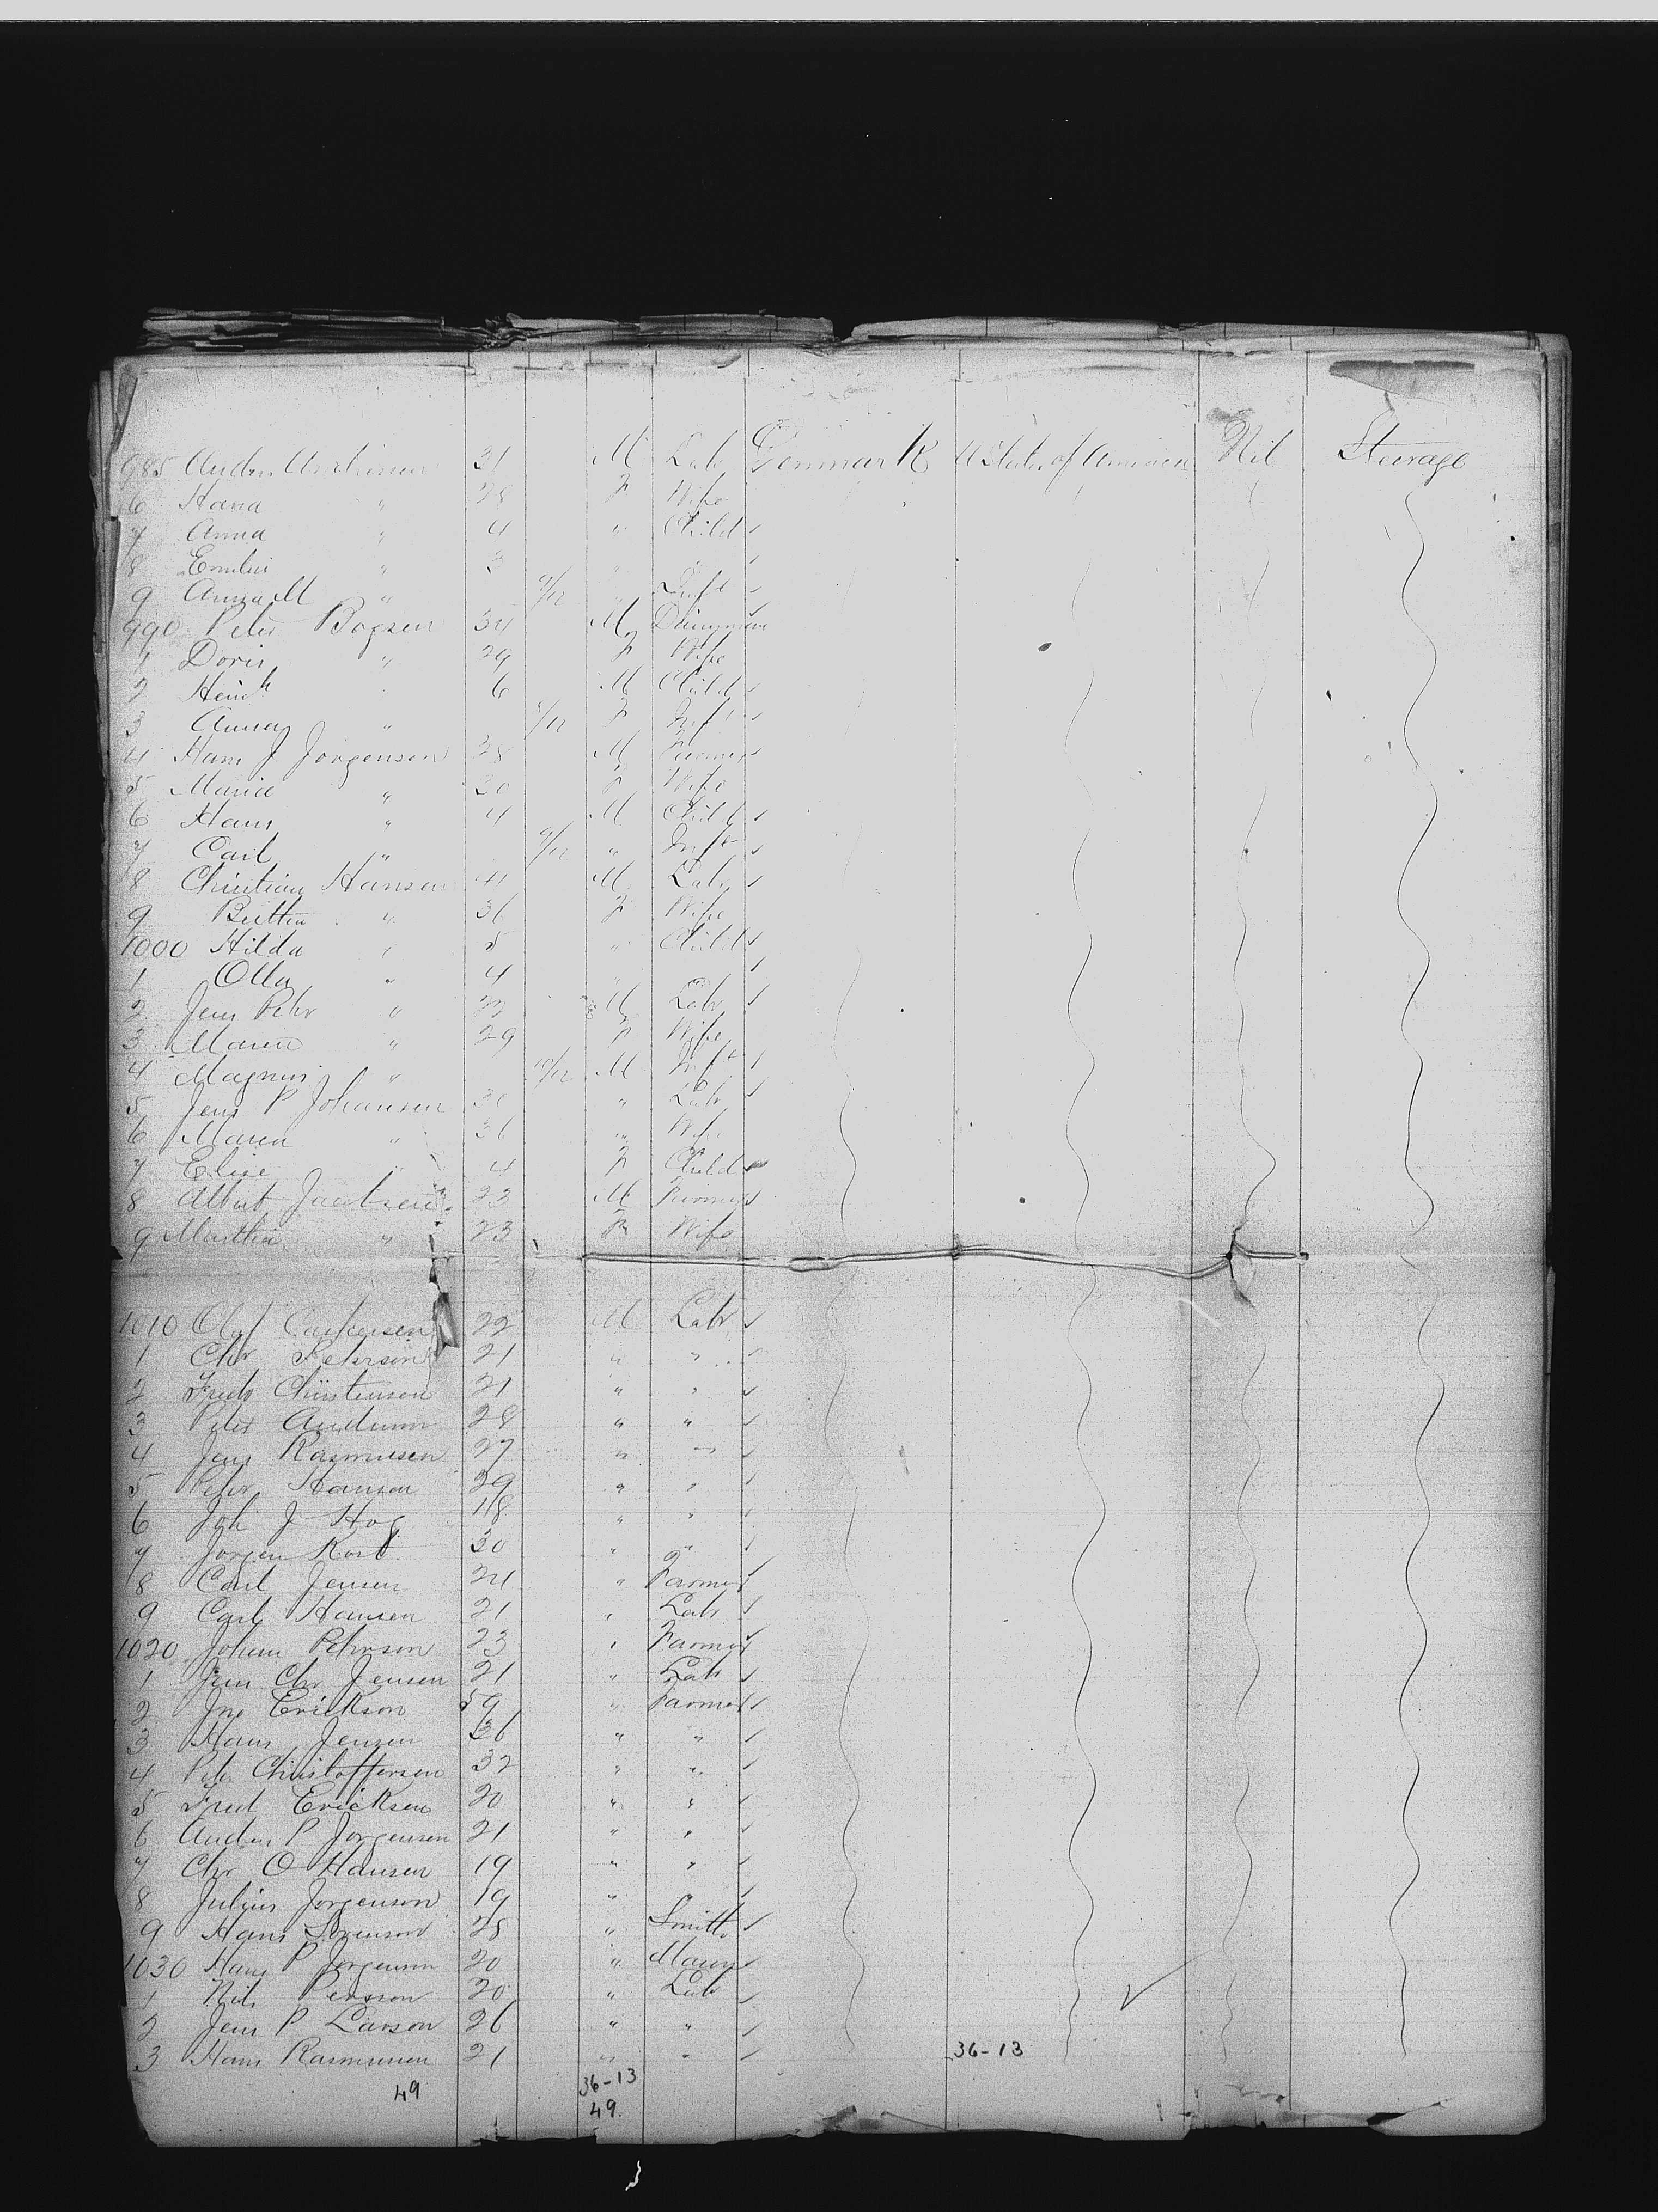 985 Anders Andersen 31 M Labr Denmark U States of America Nil Steerage
6 Hana " 28 F Wife
7 Anna " 4 " Child
8 Emilie " 3 "
9 Anna M " 9/12 " Inft
990 Peter Bogsen 34 M Dairyman
1 Doris " 29 F Wife
2 Heinh 6 M Child
3 Anna " /12 F Inft
4 Hans J Jorgensen 38 M Farmer
5 Marie " 30 F Wife
6 Hans " 4 M Child
7 Carl " 9/12 " Inft
8 Christian Hansen 41 M Labr
9 " 36 F Wife
1000 Hilda " 5 " Child
1 Olla " 4 "
2 Jens Pehr " M Labr
3 Maren " 29 F Wife
4 Magnus " 10/12 M Inft
5 Jens P Johansen " Labr
6 Maren " 36 " Wife
7 Elise " 4 F Child
8 Albert Jacobsen 23 M Farmer
9 Martha " 23 F Wife
1010 Olaf 22 M Labr
1 Chr Peterson 21 " "
2 Fredr Christensen 21 " "
3 Peter Anderson 28 " "
4 Jens Rasmussen 27 " "
5 Pehr Hansen 29 " "
6 Joh J Hog 48 " "
7 Jorgen 30 " "
8 Carl Jensen 24 " Farmer
9 Carl Hansen 21 " Labr
1020 Johan Pehrson 23 " Farmer
1 Jens Chr Jensen 21 " Labr
2 Jno Erickson 59 " Farmer
3 Hans Jensen 36 " "
4 Peter Christoffersen 32 " "
5 Fred Ericksen 20 " "
6 Anders P Jorgensen 21 " "
7 Chr O Hansen 19 " "
8 Julius Jorgenson 19 "
9 Hans Sorenson 28 " Smith
1030 Hans P Jorgenson 20 " Mason
1 Nils Persson 20 " Labr
2 Jens P Larson 26 " "
3 Hans Rasmussen 21 " " 36-13
49 36-13
49.